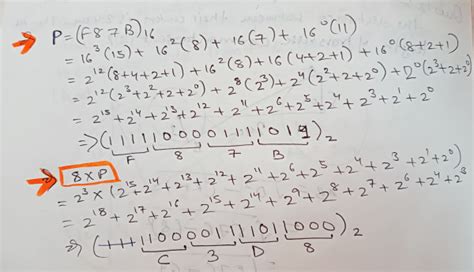 P = (F87B)₁₆
= 16³(15) + 16²(8) + 16(7) + 16⁰(11)
= 2¹²(8+4+2+1) + 16²(8) + 16(4+2+1) + 16⁰(8+2+1)
= 2¹²(2³+2²+2+2⁰) + 2⁸(2³) + 2⁴(2²+2+2⁰) + 2⁰(2³+2+2⁰)
= 2¹⁵ + 2¹⁴ + 2¹³ + 2¹² + 2¹¹ + 2⁶ + 2⁵ + 2⁴ + 2³ + 2¹ + 2⁰
⇒ (1111100001111011)₂
F 8 7 B
8 × P
= 2³ × (2¹⁵ + 2¹⁴ + 2¹³ + 2¹² + 2¹¹ + 2⁶ + 2⁵ + 2⁴ + 2³ + 2¹ + 2⁰)
= 2¹⁸ + 2¹⁷ + 2¹⁶ + 2¹⁵ + 2¹⁴ + 2⁹ + 2⁸ + 2⁷ + 2⁶ + 2⁴ + 2³
⇒ (1111100001111011000)₂
C 3 D 8